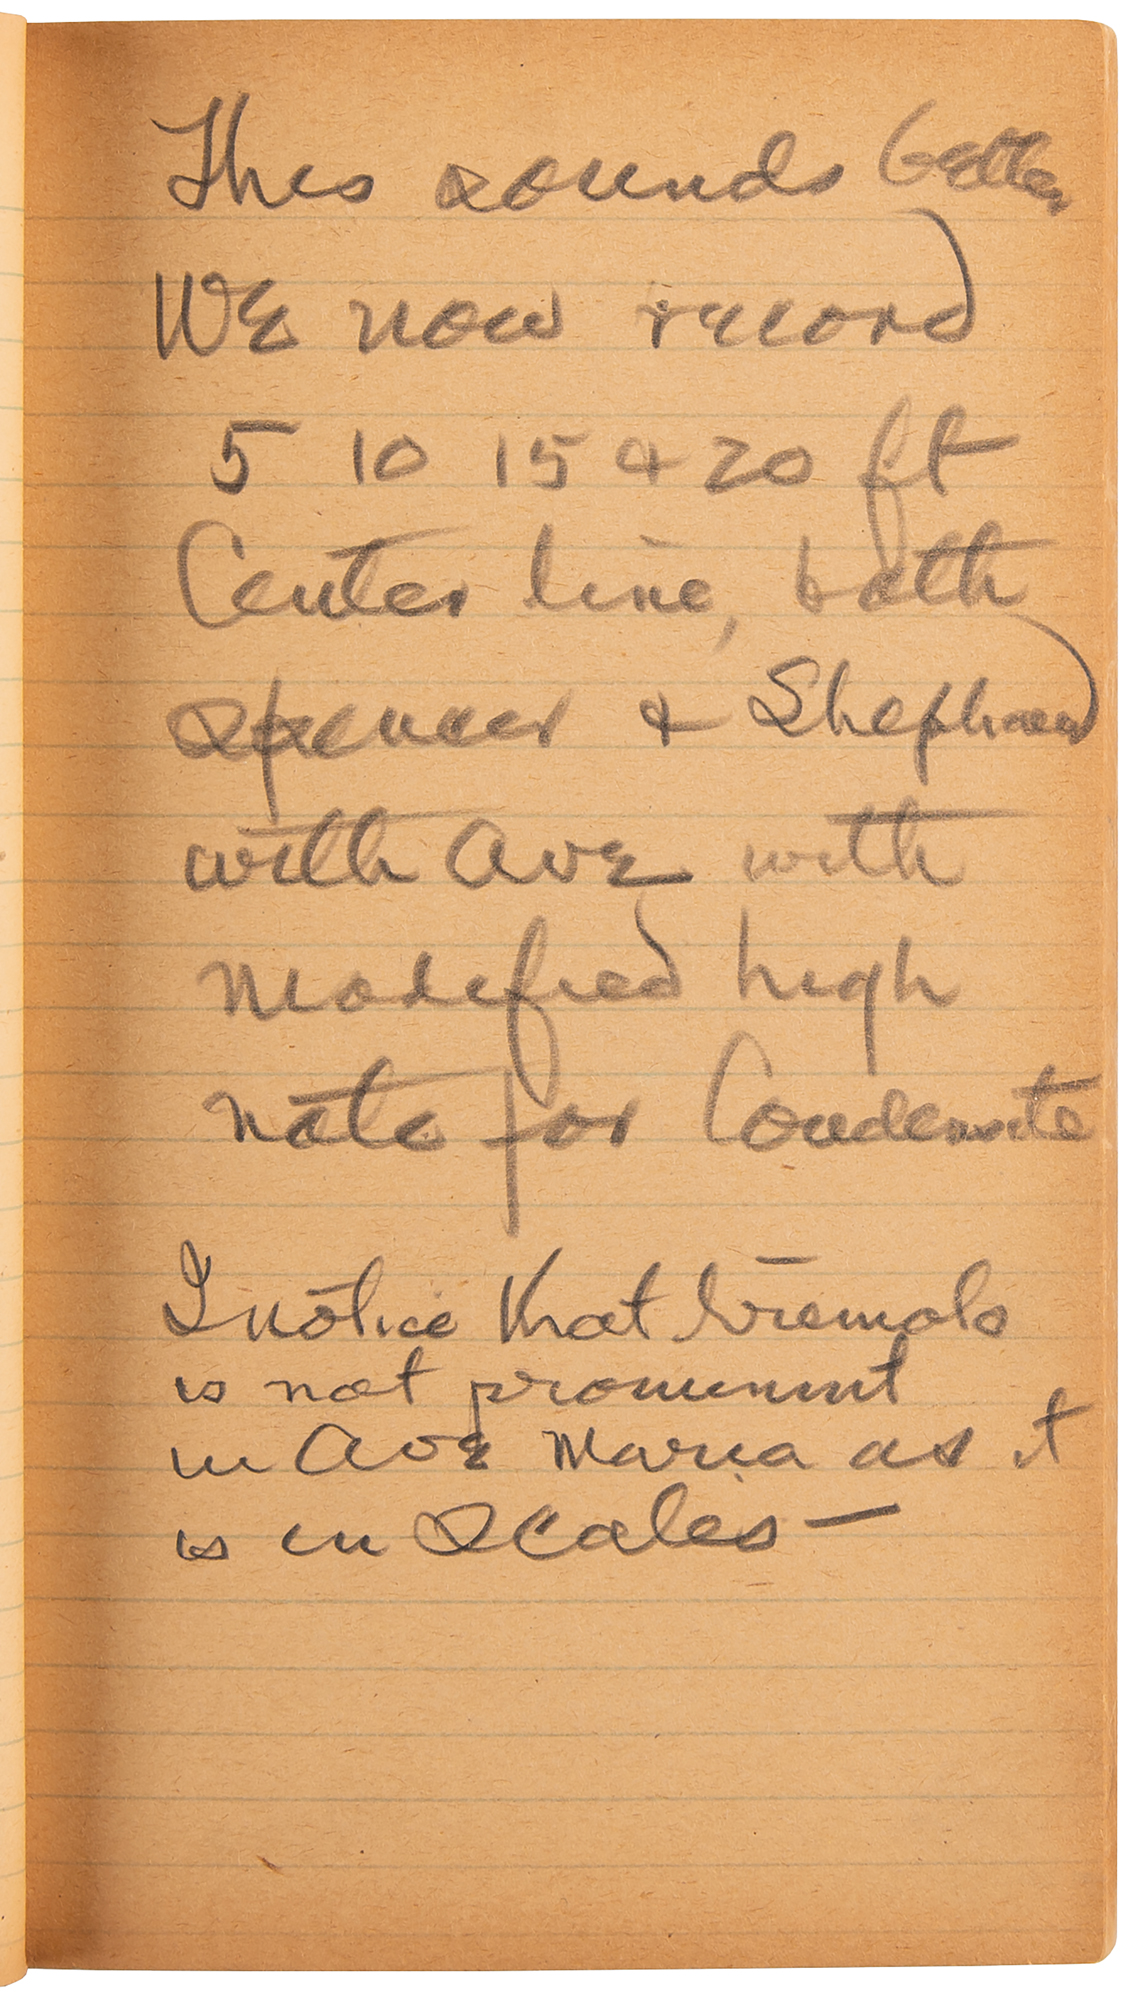 This sounds better
We now record
5 10 15 & 20 ft
Center line, both
Spencer & Shephard
with Ave with
modified high
note for Condensite
I notice that tremolo
is not prominent
in Ave Maria as it
is in Scales —